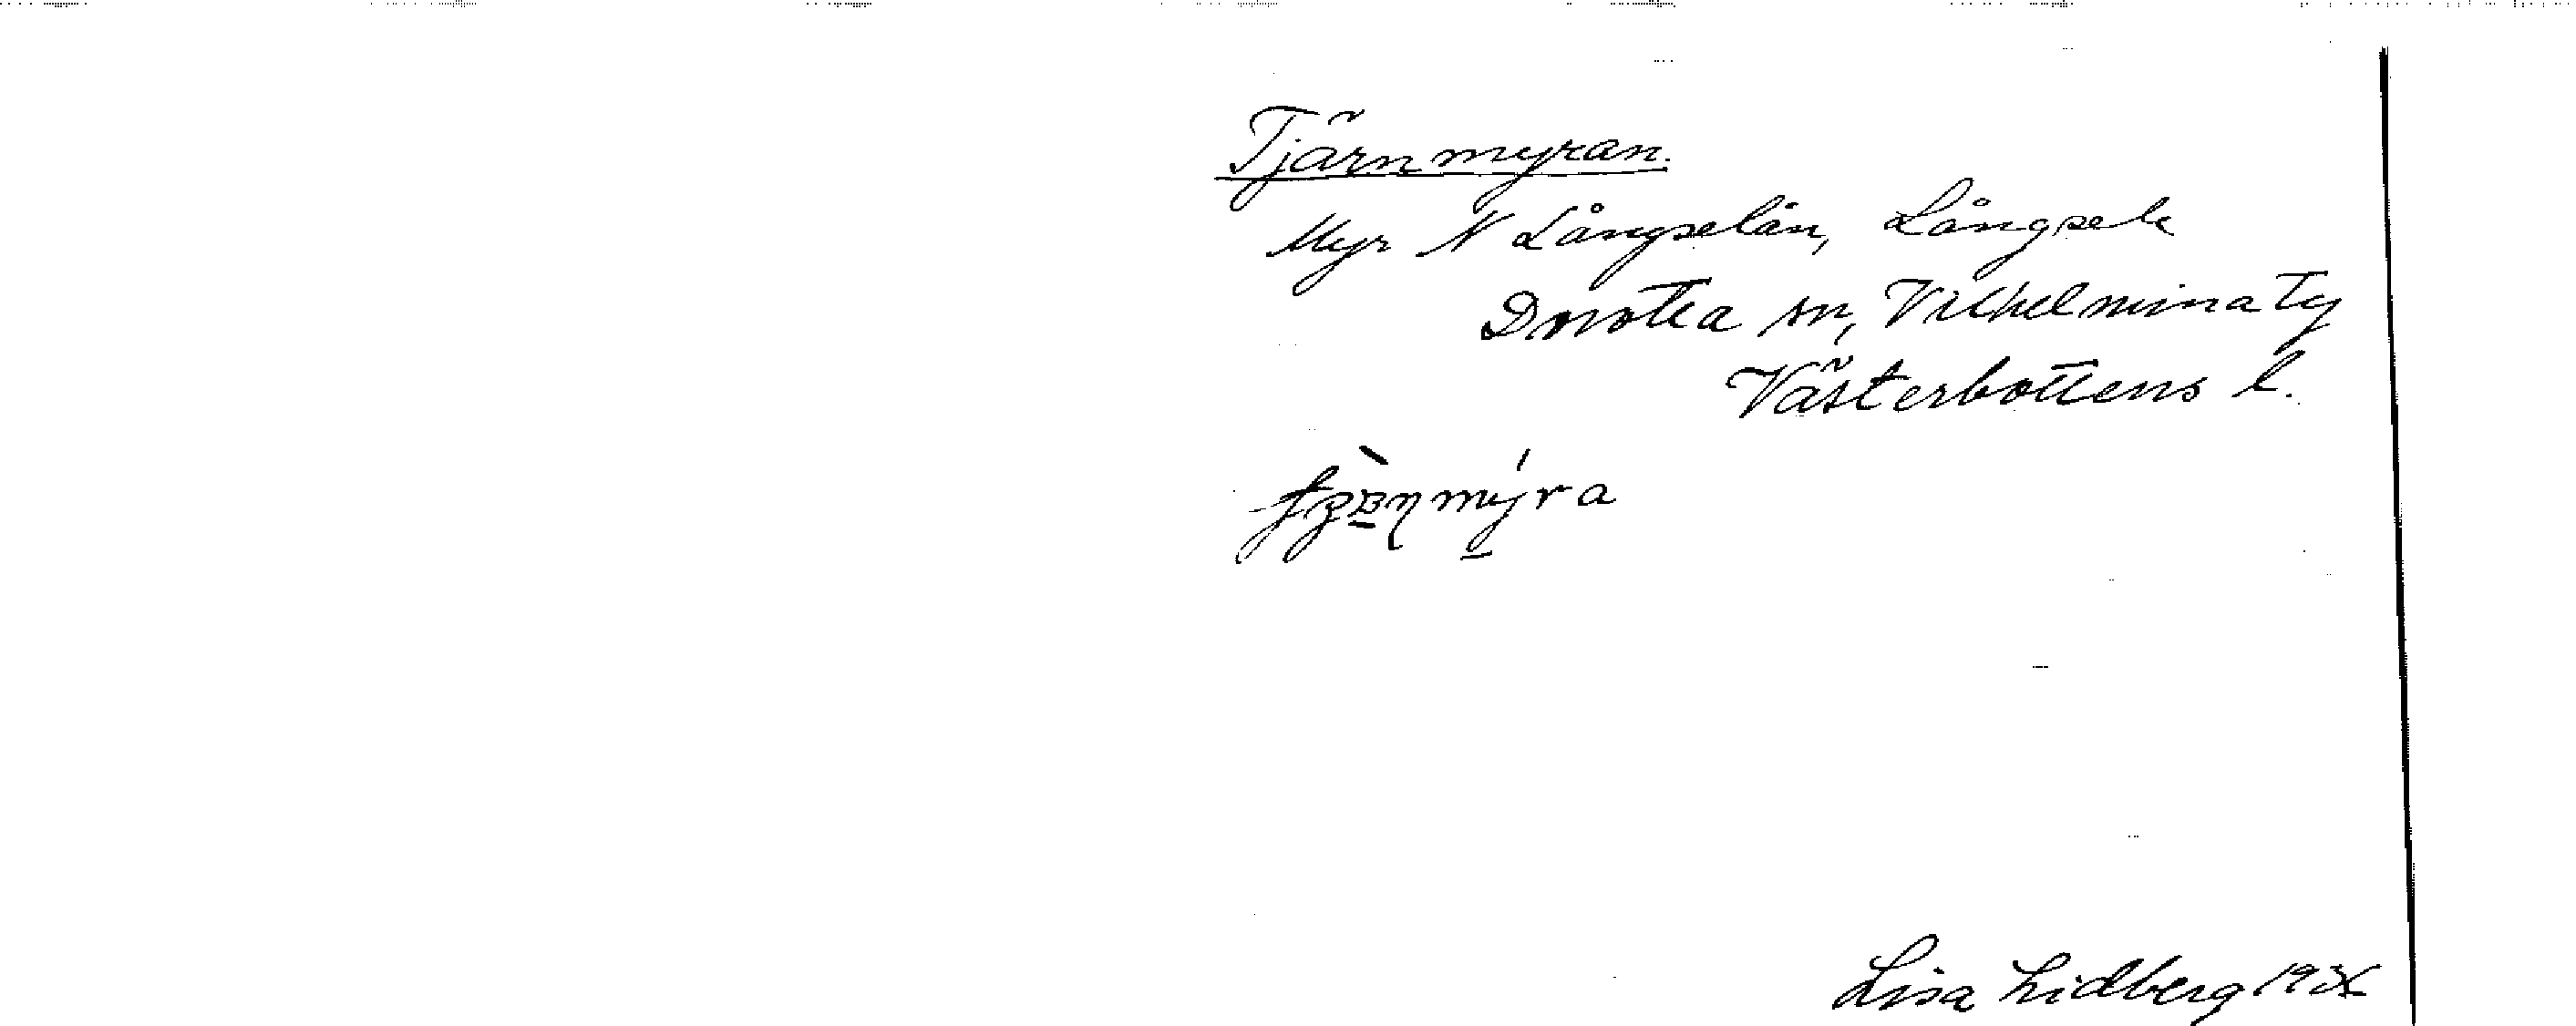 Tjärnmyran.
Myr N Långselån, Långsele
Dorotea sn, Vilhelmina tg
Västerbottens l.
Lisa Lidberg